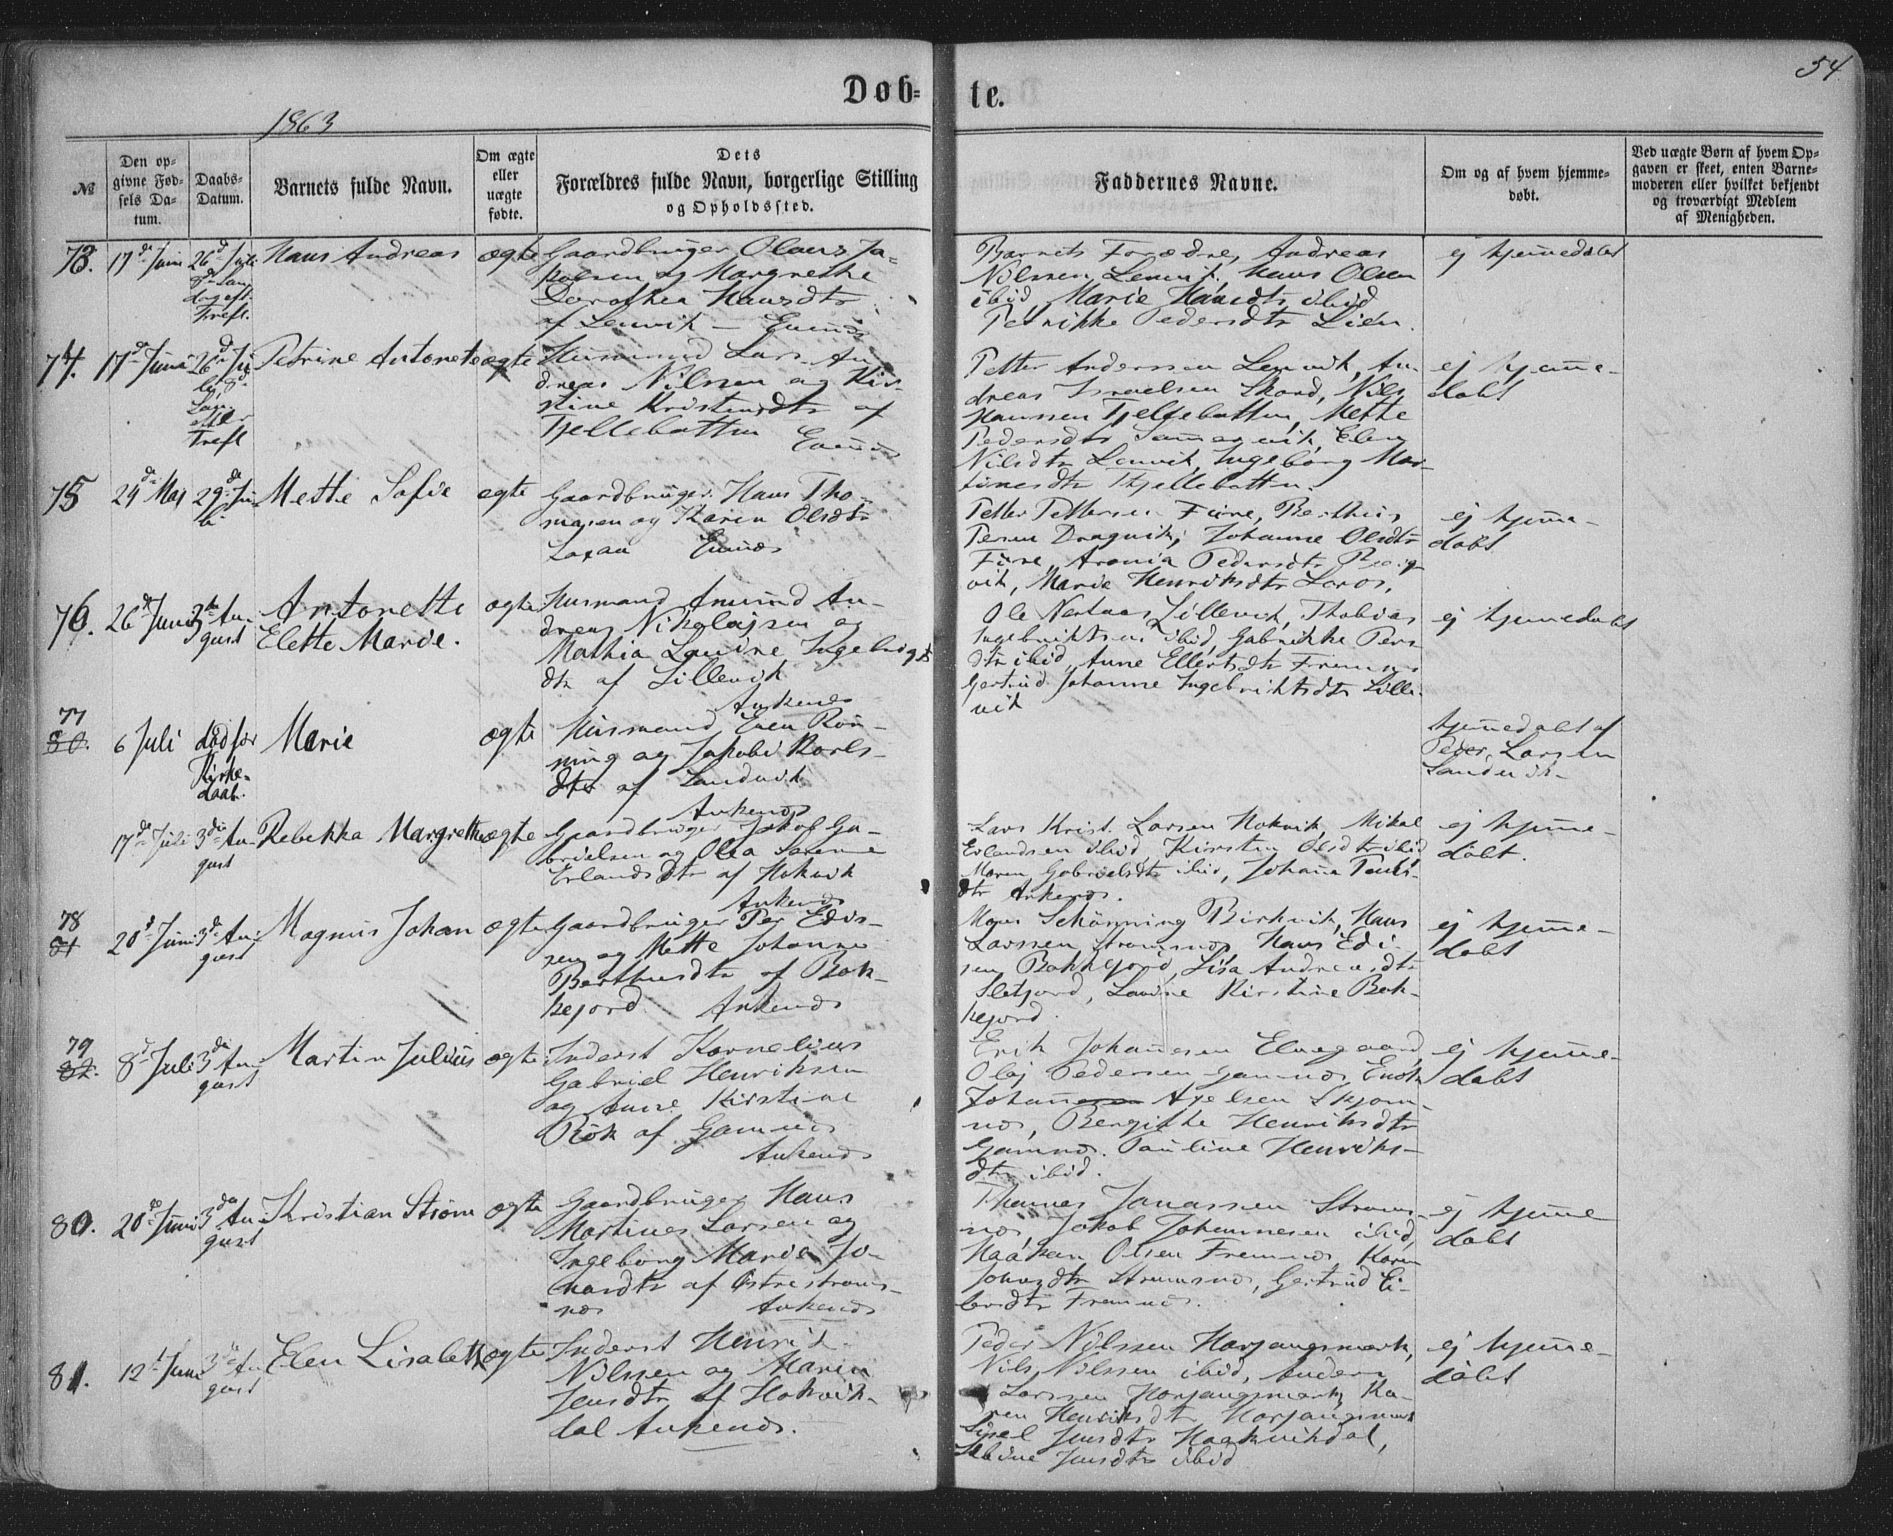 54
Døb=
te.
1863
№
Den op-
givne Fød-
sels Da-
tum.
Daabs-
Datum.
Barnets fulde Navn.
Om ægte
eller
uægte
fødte.
Dets
Forældres fulde Navn, borgerlige Stilling
og Opholdssted.
Faddernes Navne.
Om og af hvem hjemme-
døbt.
Ved uægte Børn af hvem Op-
gaven er skeet, enten Barne-
moderen eller hvilket bekjendt
og troværdigt Medlem
af Menigheden.
73.
17de Juni
26d
Hans Andreas
ægte
Gaardbruger Olaus Ja-
kobsen og Margrethe
Dorothea Hansdtr
af Lenvik — Evenæs
Barnets Forældre, Andreas
Nilssen Lenvik, Hans Olsen
ibid, Marie Hansdtr ibid
Petrikke Pedersdtr Lien.
ej hjemmedøbt
74.
17de Juni
26d Ju-
li
Petrine Antonete
ægte
Husmand Lars An-
dreas Nilssen og Kir-
stine Kristensdtr af
Tjellebotten Evenæs
Petter Anderssen Lenvik, An-
dreas Israelsen Skard, Nils
Hanssen Tjellebotten, Mette
Pedersdtr Elen
Nilsdtr Lenvik, Ingeborg Mar-
tinesdtr Tjellebotten.
ej hjemme-
døbt
75
24de Maj
29de Ju-
li
Mette Sofie
ægte
Gaardbruger Hans Tho-
masen og Karen Olsdtr
Evenæs
Petter Pettersen
Johanne Olsdtr
Pedersdtr
vik, Marie Henriksdtr
ej hjemme-
døbt
76.
26de Juni
3die Au-
gust
Antonette
Elette Marie.
ægte
Husmand Amund An-
dreas Nikolajsen og
Mathia Lavine Ingebrigts
dtr af Lillevik
Ankenes
Ole Lillevik, Thobias
Ingebriktsen ibid, Gabrikke Pers
dtr ibid, Anne Ellertsdtr
Gertrud Johanne Ingebriktsdtr Lille-
vik
ej hjemmedøbt
77
80.
6 Juli
død før
Kirke-
daab.
Marie
ægte
Husmand Even Røn-
ning og Jakobe Karls-
dtr af Sandvik
Ankenes
hjemmedøbt af
Peder Larsen
Sandvik-
17de Juli
3die Au-
gust
Rebekka Margrethe
ægte
Gaardbruger Jakob Ga-
brielsen og Olea
Erlandsdtr af Hokvik
Ankenes
Lars Krist. Larsen Hokvik, Mikal
Erlandsen ibid Kirsten Olsdtr ibid
Maren Gabrielsdtr ibid, Johanna
dtr Ankenes.
ej hjemme-
døbt.
78
81
20d Juni
3de Au-
gust
Magnus Johan
ægte
Gaardbruger Per Edis-
sen og Mette Johanna
Berthusdtr af Bok-
kefjord Ankenes
Schønning Birkvik, Hans
Larssen Hans Edi-
sen Bokkefjord, Lisa Andreasdtr
Sletjord, Lavine Kirstine Bok-
kefjord.
ej hjemme-
døbt
79
82.
8d Juli
3die Au-
gust
Martin Julius
ægte
Inderst Kornelius
Gabriel Henriksen
og Anne Kirstine
af Gamnes
Ankenes
Erik Johannesen Elvegaard
Olaj Pedersen Gamnes
Johan Axelsen Skjom-
nes, Bergitte Henriksdtr
Gamnes. Pauline Henriks-
dtr ibid.
ej hjemme-
døbt
80.
20de Juni
3die Au-
gust
Kristian Strøm
ægte
Gaardbruger Hans
Martines Larsen og
Ingeborg Marie Jo-
nasdtr af Østrestrøms-
nes Ankenes
Thomas Jonassen Strøms-
nes, Jakob Johannesen ibid,
Haakan Olsen Karen
Jonasdtr Strømsnes, Gertrud
ej hjemme
døbt
81.
12t Juni
3de Au
gust
Elen Lisabeth
ægte
Inderst Henrik
Nilssen og Maria
Jensdtr af Hokvik-
dal Ankenes.
Peder Nilssen Harjangsmark,
Nils Nilssen ibid, Anders
Larssen Harjangsmark, Ka-
ren Henriksdtr Harjangsmark
Jensdtr Haakvikdal,
Jensdtr ibid
ej hjemme-
døbt